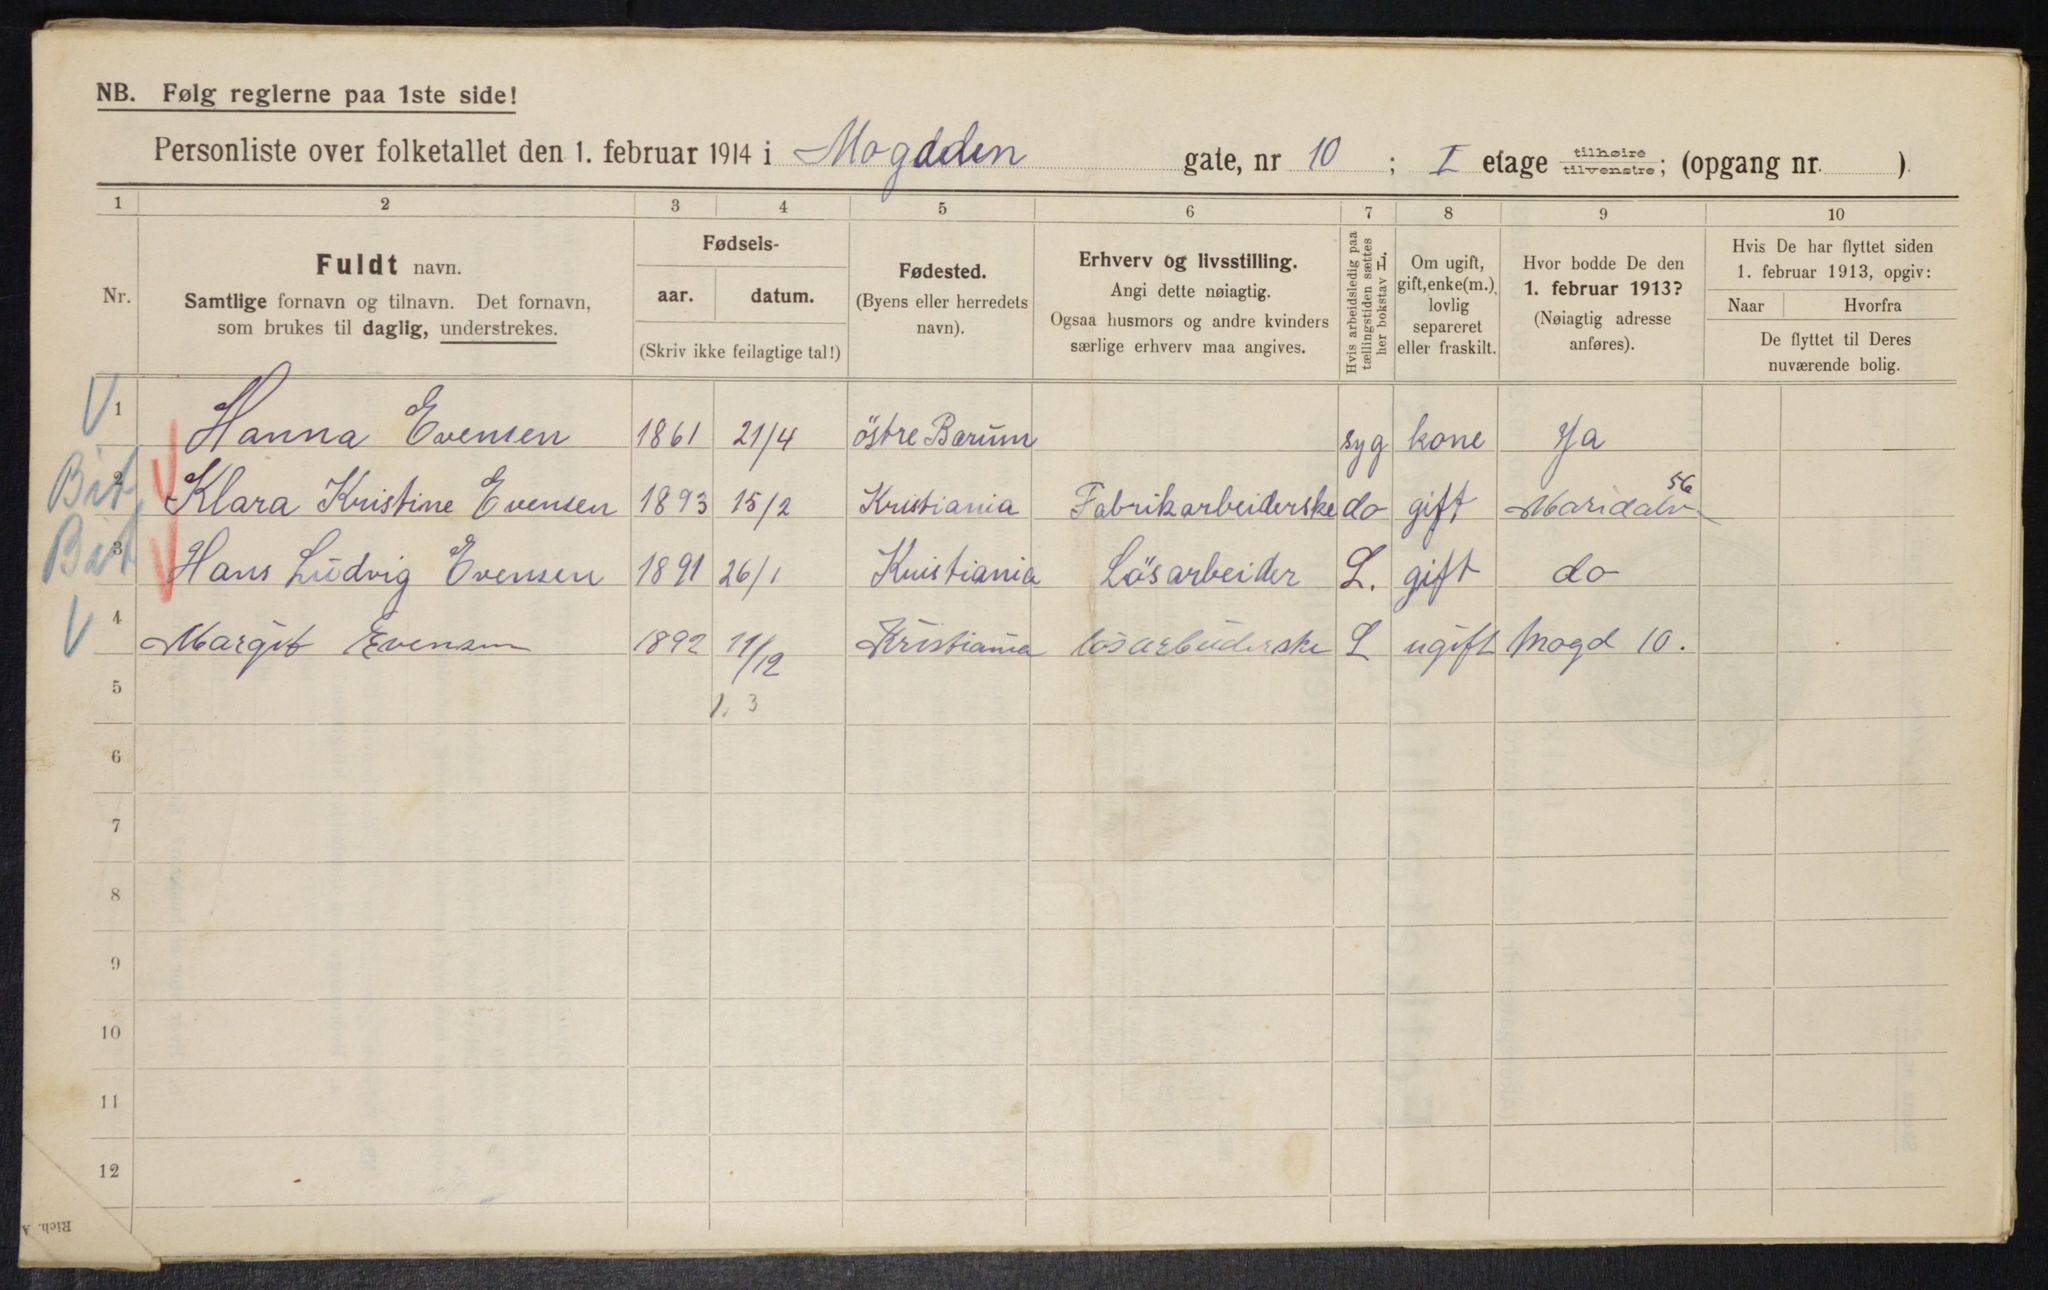 NB. Følg reglerne paa 1ste side!
Personliste over folketallet den 1. februar 1914 i Mogdden gate, nr 10 ; I etage tilhøire/tilvenstre; (opgang nr. ).
1 2 3 4 5 6 7 8 9 10
Nr.
Fuldt navn.
Samtlige fornavn og tilnavn. Det fornavn,
som brukes til daglig, understrekes.
Fødsels-
aar. datum.
(Skriv ikke feilagtige tal!)
Fødested.
(Byens eller herredets
navn).
Erhverv og livsstilling.
Angi dette nøiagtig.
Ogsaa husmors og andre kvinders
særlige erhverv maa angives.
Hvis arbeidsledig paa
tællingstiden sættes
her bokstav L.
Om ugift,
gift, enke(m.),
lovlig
separeret
eller fraskilt.
Hvor bodde De den
1. februar 1913?
(Nøiagtig adresse
anføres).
Hvis De har flyttet siden
1. februar 1913, opgiv:
Naar Hvorfra
De flyttet til Deres
nuværende bolig.
V 1 Hanna Evensen 1861 21/4 östre Barum syg kone Ja
Bit 2 V Klara Kristine Evensen 1893 15/2 Kristiania Fabrikarbeiderske do gift Maridalv 56
Bit 3 V Hans Ludvig Evensen 1891 26/1 Kristiania Lösarbeider L. gift do
V 4 Margit Evensen 1892 11/12 Kristiania lösarbeiderske L ugift Mogd 10.
5 1, 3
6
7
8
9
10
11
12
Rich. A